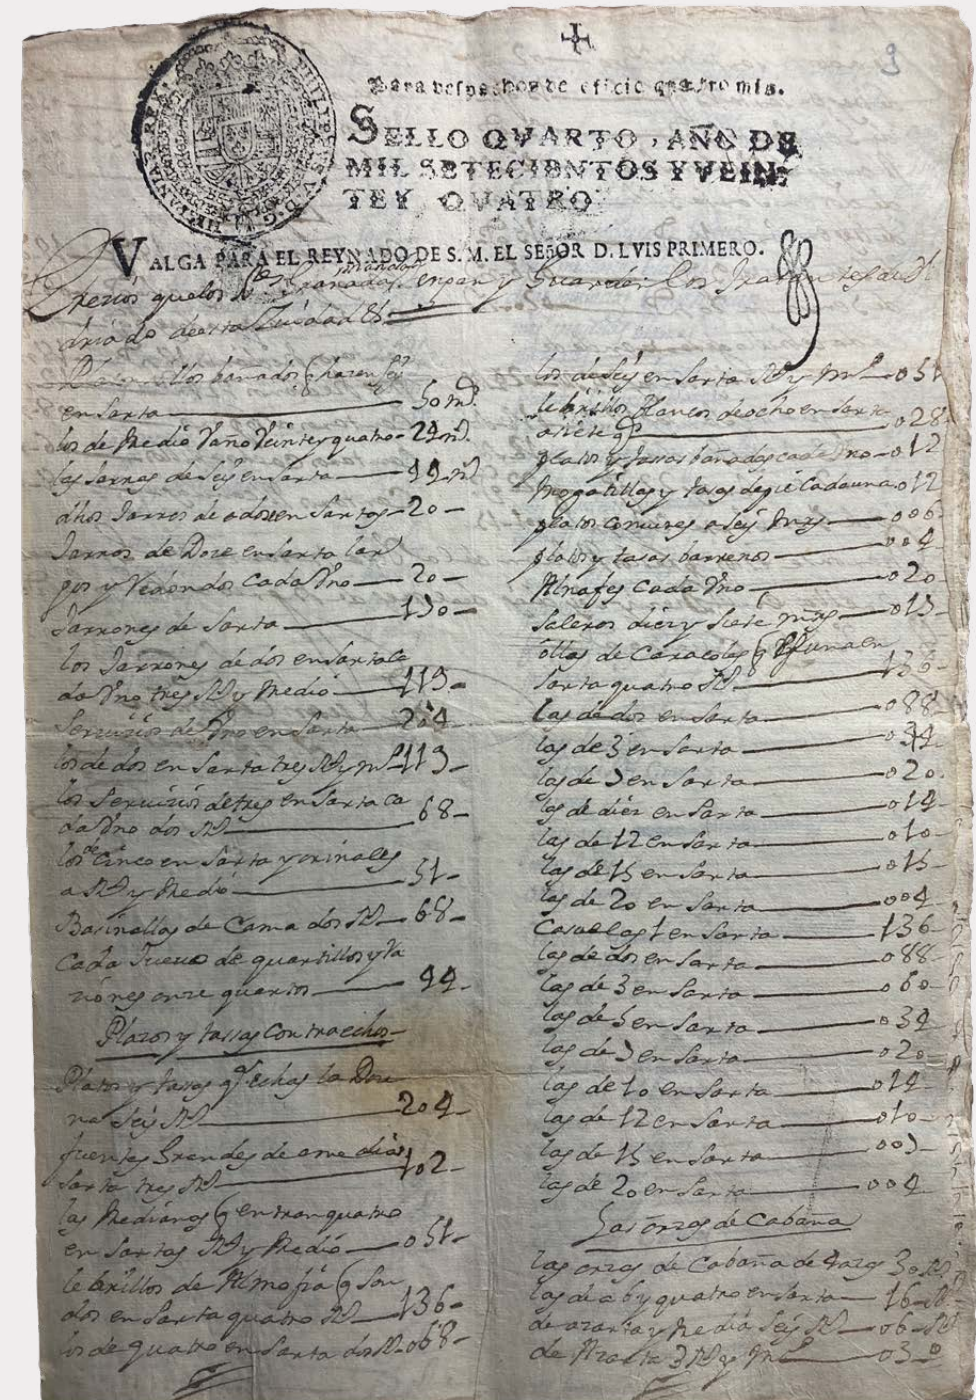 9
Para despachos de oficio quatro mrs.
SELLO QVARTO, AÑO DE
MIL SETECIENTOS Y VEIN
TE Y QVATRO
PHILIPPUS V. D. G. HISPANIAR. REX
VALGA PARA EL REYNADO DE S. M. EL SEñOR D. LVIS PRIMERO.
Prezios que los y Guarden los
driado de esta Ziudad
bañados q hazen seis
en Sarta 50 ms.
los de Medio Vaño Veinte y quatro 24 ms.
las Jarras de Seis en Sarta 44 ms
dhos Jarros de a doze en Sartas 20
Jarros de Doze en Sarta lar
gos y Redondos Cada Vno 20
Jarrones de Sarta 130
los Jarrones de dos en Sarta Ca
da Vno tres Rs y Medio 119
Servizios de Vno en Sarta 204
los de dos en Sarta tres Rs y mo 119
los Servizios de tres en Sarta Ca
da Vno dos Rs 68
los de Cinco en Sarta y orinales
a Rl y Medio 51
Bazinillas de Cama dos Rs 68
Cada Juego de quartillos y Ra
ziones onze quartos 44
Platos y tassas Contraechas
Platos y tasas echas la Doze
na Seis Rs 204
fuentes Grandes de a media
Sarta tres Rs 102
las Medianas q entran quatro
en Sartas Rl y Medio 051
lebrillos de Almofia q Son
dos en Sarta quatro Rs 136
los de quatro en Sarta dos Rs 068
los de Seis en Sarta Rl y mo 051
lebrillos Blancos de ocho en Sarta
028
platos y tassas bañadas cada Vno 012
y tasas de pie Cada una 012
platos comunes a Seis mrs 006
platos y tasas barreños 004
Alnafes Cada Vno 020
Saleros diez y Siete mrs 017
ollas de Caracoles q una en
Sarta quatro Rs 136
las de dos en Sarta 088
las de 5 en Sarta 034
las de 7 en Sarta 020
las de diez en Sarta 014
las de 12 en Sarta 010
las de 15 en Sarta
las de 20 en Sarta 004
Casuelas 1 en Sarta 136
las de dos en Sarta 088
las de 3 en Sarta 060
las de 5 en Sarta 034
las de 7 en Sarta 020
las de 10 en Sarta 014
las de 12 en Sarta 010
las de 15 en Sarta 007
las de 20 en Sarta 004
Las orzas de Cabaña
las orzas de Cabaña de 30 Rs
las de a 6 y quatro en Sarta 16 Rs
de y Media Seis Rs 06 Rs
de 3 Rs y mo 03